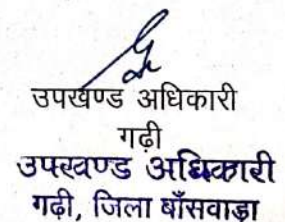 उपखण्ड अधिकारी
गढ़ी
उपखण्ड अधिकारी
गढ़ी, जिला बाँसवाड़ा